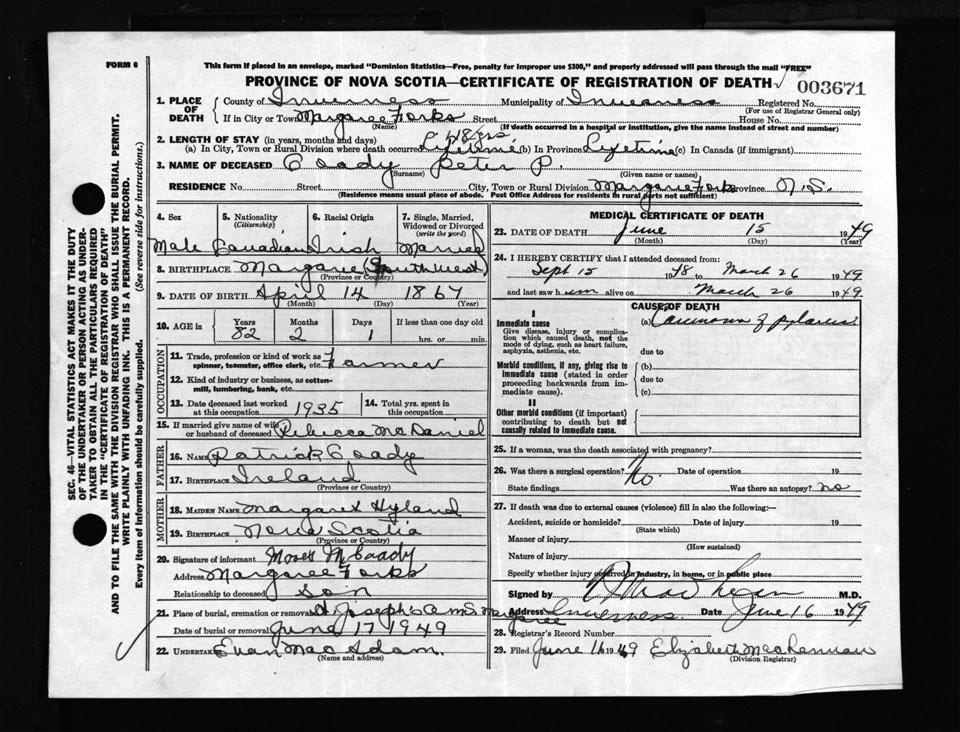 FORM 6
This form if placed in an envelope, marked "Dominion Statistics—Free, penalty for improper use $300," and properly addressed will pass through the mail "FREE"
PROVINCE OF NOVA SCOTIA—CERTIFICATE OF REGISTRATION OF DEATH
003671
1. PLACE OF DEATH
County of Inverness Municipality of Inverness Registered No.
(For use of Registrar General only)
If in City or Town Margaree Forks Street House No.
(Name) (If death occurred in a hospital or institution, give the name instead of street and number)
2. LENGTH OF STAY (in years, months and days)
(a) In City, Town or Rural Division where death occurred Lifetime (b) In Province Lifetime (c) In Canada (if immigrant)
3. NAME OF DECEASED Coady Peter P.
(Surname) (Given name or names)
RESIDENCE No. Street City, Town or Rural Division Margaree Forks Province N.S.
(Residence means usual place of abode. Post Office Address for residents in rural parts not sufficient)
4. Sex Male
5. Nationality (Citizenship) Canadian
6. Racial Origin Irish
7. Single, Married, Widowed or Divorced (write the word) Married
8. BIRTHPLACE Margaree (Southwest)
(Province or Country)
9. DATE OF BIRTH April 14 1867
(Month) (Day) (Year)
10. AGE in Years 82 Months 2 Days 1 If less than one day old hrs. or min.
OCCUPATION
11. Trade, profession or kind of work as spinner, teamster, office clerk, etc. Farmer
12. Kind of industry or business, as cotton-mill, lumbering, bank, etc.
13. Date deceased last worked at this occupation 1935
14. Total yrs. spent in this occupation
15. If married give name of wife or husband of deceased Rebecca MacDaniel
FATHER
16. NAME Patrick Coady
17. BIRTHPLACE Ireland
(Province or Country)
MOTHER
18. MAIDEN NAME Margaret Hyland
19. BIRTHPLACE Nova Scotia
(Province or Country)
20. Signature of informant Moses M Coady
Address Margaree Forks
Relationship to deceased Son
21. Place of burial, cremation or removal St Joseph's Margaree
Date of burial or removal June 17 1949
22. UNDERTAKER Evan MacAdam.
(Name and address)
MEDICAL CERTIFICATE OF DEATH
23. DATE OF DEATH June 15 1949
(Month) (Day) (Year)
24. I HEREBY CERTIFY that I attended deceased from:
Sept 15 1948 to March 26 1949
and last saw him alive on March 26 1949
CAUSE OF DEATH
I
Immediate cause
Give disease, injury or complication which caused death, not the mode of dying, such as heart failure, asphyxia, asthenia, etc.
(a) Carcinoma of pylorus
due to
Morbid conditions, if any, giving rise to immediate cause (stated in order proceeding backwards from immediate cause).
(b)
due to
(c)
II
Other morbid conditions (if important) contributing to death but not causally related to immediate cause.
25. If a woman, was the death associated with pregnancy?
26. Was there a surgical operation? No. Date of operation 19
State findings Was there an autopsy? no
27. If death was due to external causes (violence) fill in also the following:—
Accident, suicide or homicide? Date of injury 19
(State which)
Manner of injury
(How sustained)
Nature of injury
Specify whether injury occurred in industry, in home, or in public place
Signed by M.D.
Address Inverness Date June 16 1949
28. Registrar's Record Number
29. Filed June 16 1949 Elizabeth MacLennan
(Division Registrar)
SEC. 46—VITAL STATISTICS ACT MAKES IT THE DUTY
OF THE UNDERTAKER OR PERSON ACTING AS UNDERTAKER
TO OBTAIN ALL THE PARTICULARS REQUIRED
IN THE "CERTIFICATE OF REGISTRATION OF DEATH"
AND TO FILE THE SAME WITH THE DIVISION REGISTRAR WHO SHALL ISSUE THE BURIAL PERMIT.
WRITE PLAINLY WITH UNFADING INK. THIS IS A PERMANENT RECORD.
Every item of information should be carefully supplied. (See reverse side for instructions.)